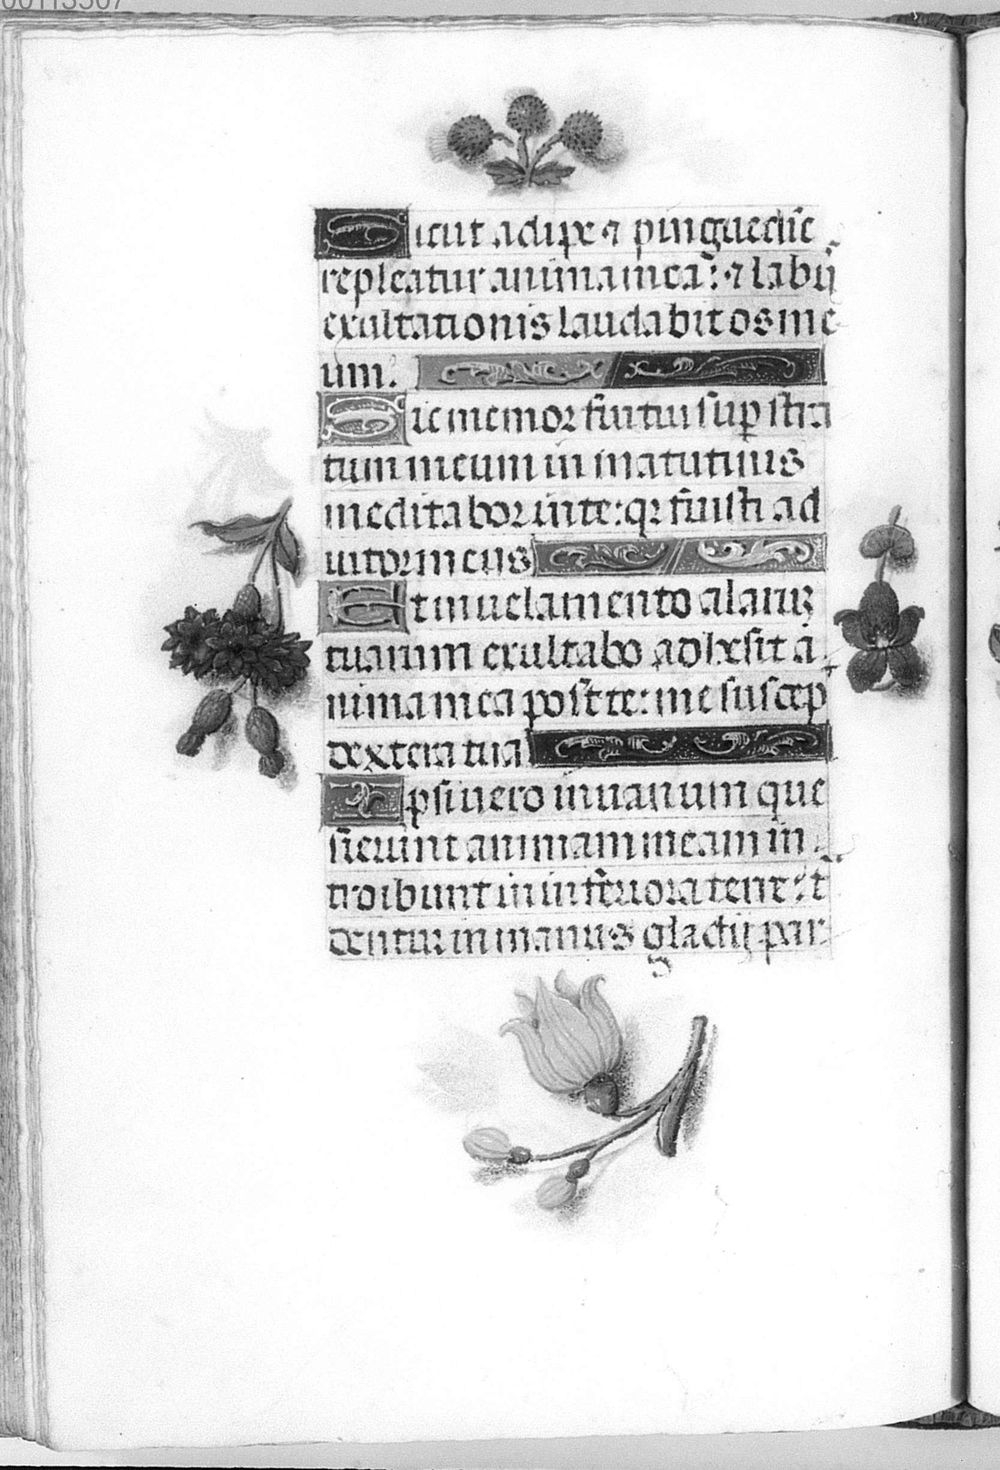 Sicut adipe ⁊ pinguedīe
repleatur anima mea: ⁊ labiis
exultationis laudabit os me
um.
Sic memor fui tui sup stra
tum meum in matutinis
meditabor in te: qꝛ fuisti ad
iutor meus
Et in uelamento alarum
tuarum exultabo adhesit a
nima mea post te: me suscep
dextera tua
Ipsi uero in uanum que
sierunt animam meam in
troibunt in inferiora terre: t
dentur in manus gladij par